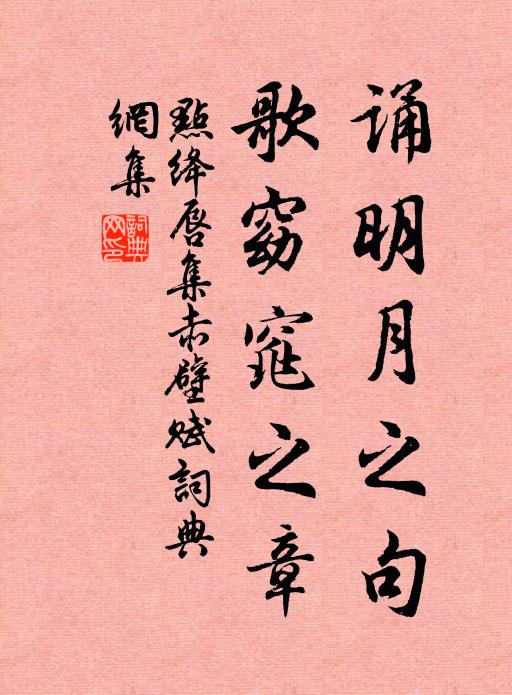 诵明月之句
歌窈窕之章
點绛唇集赤壁赋詞典
網集
詞典
网印